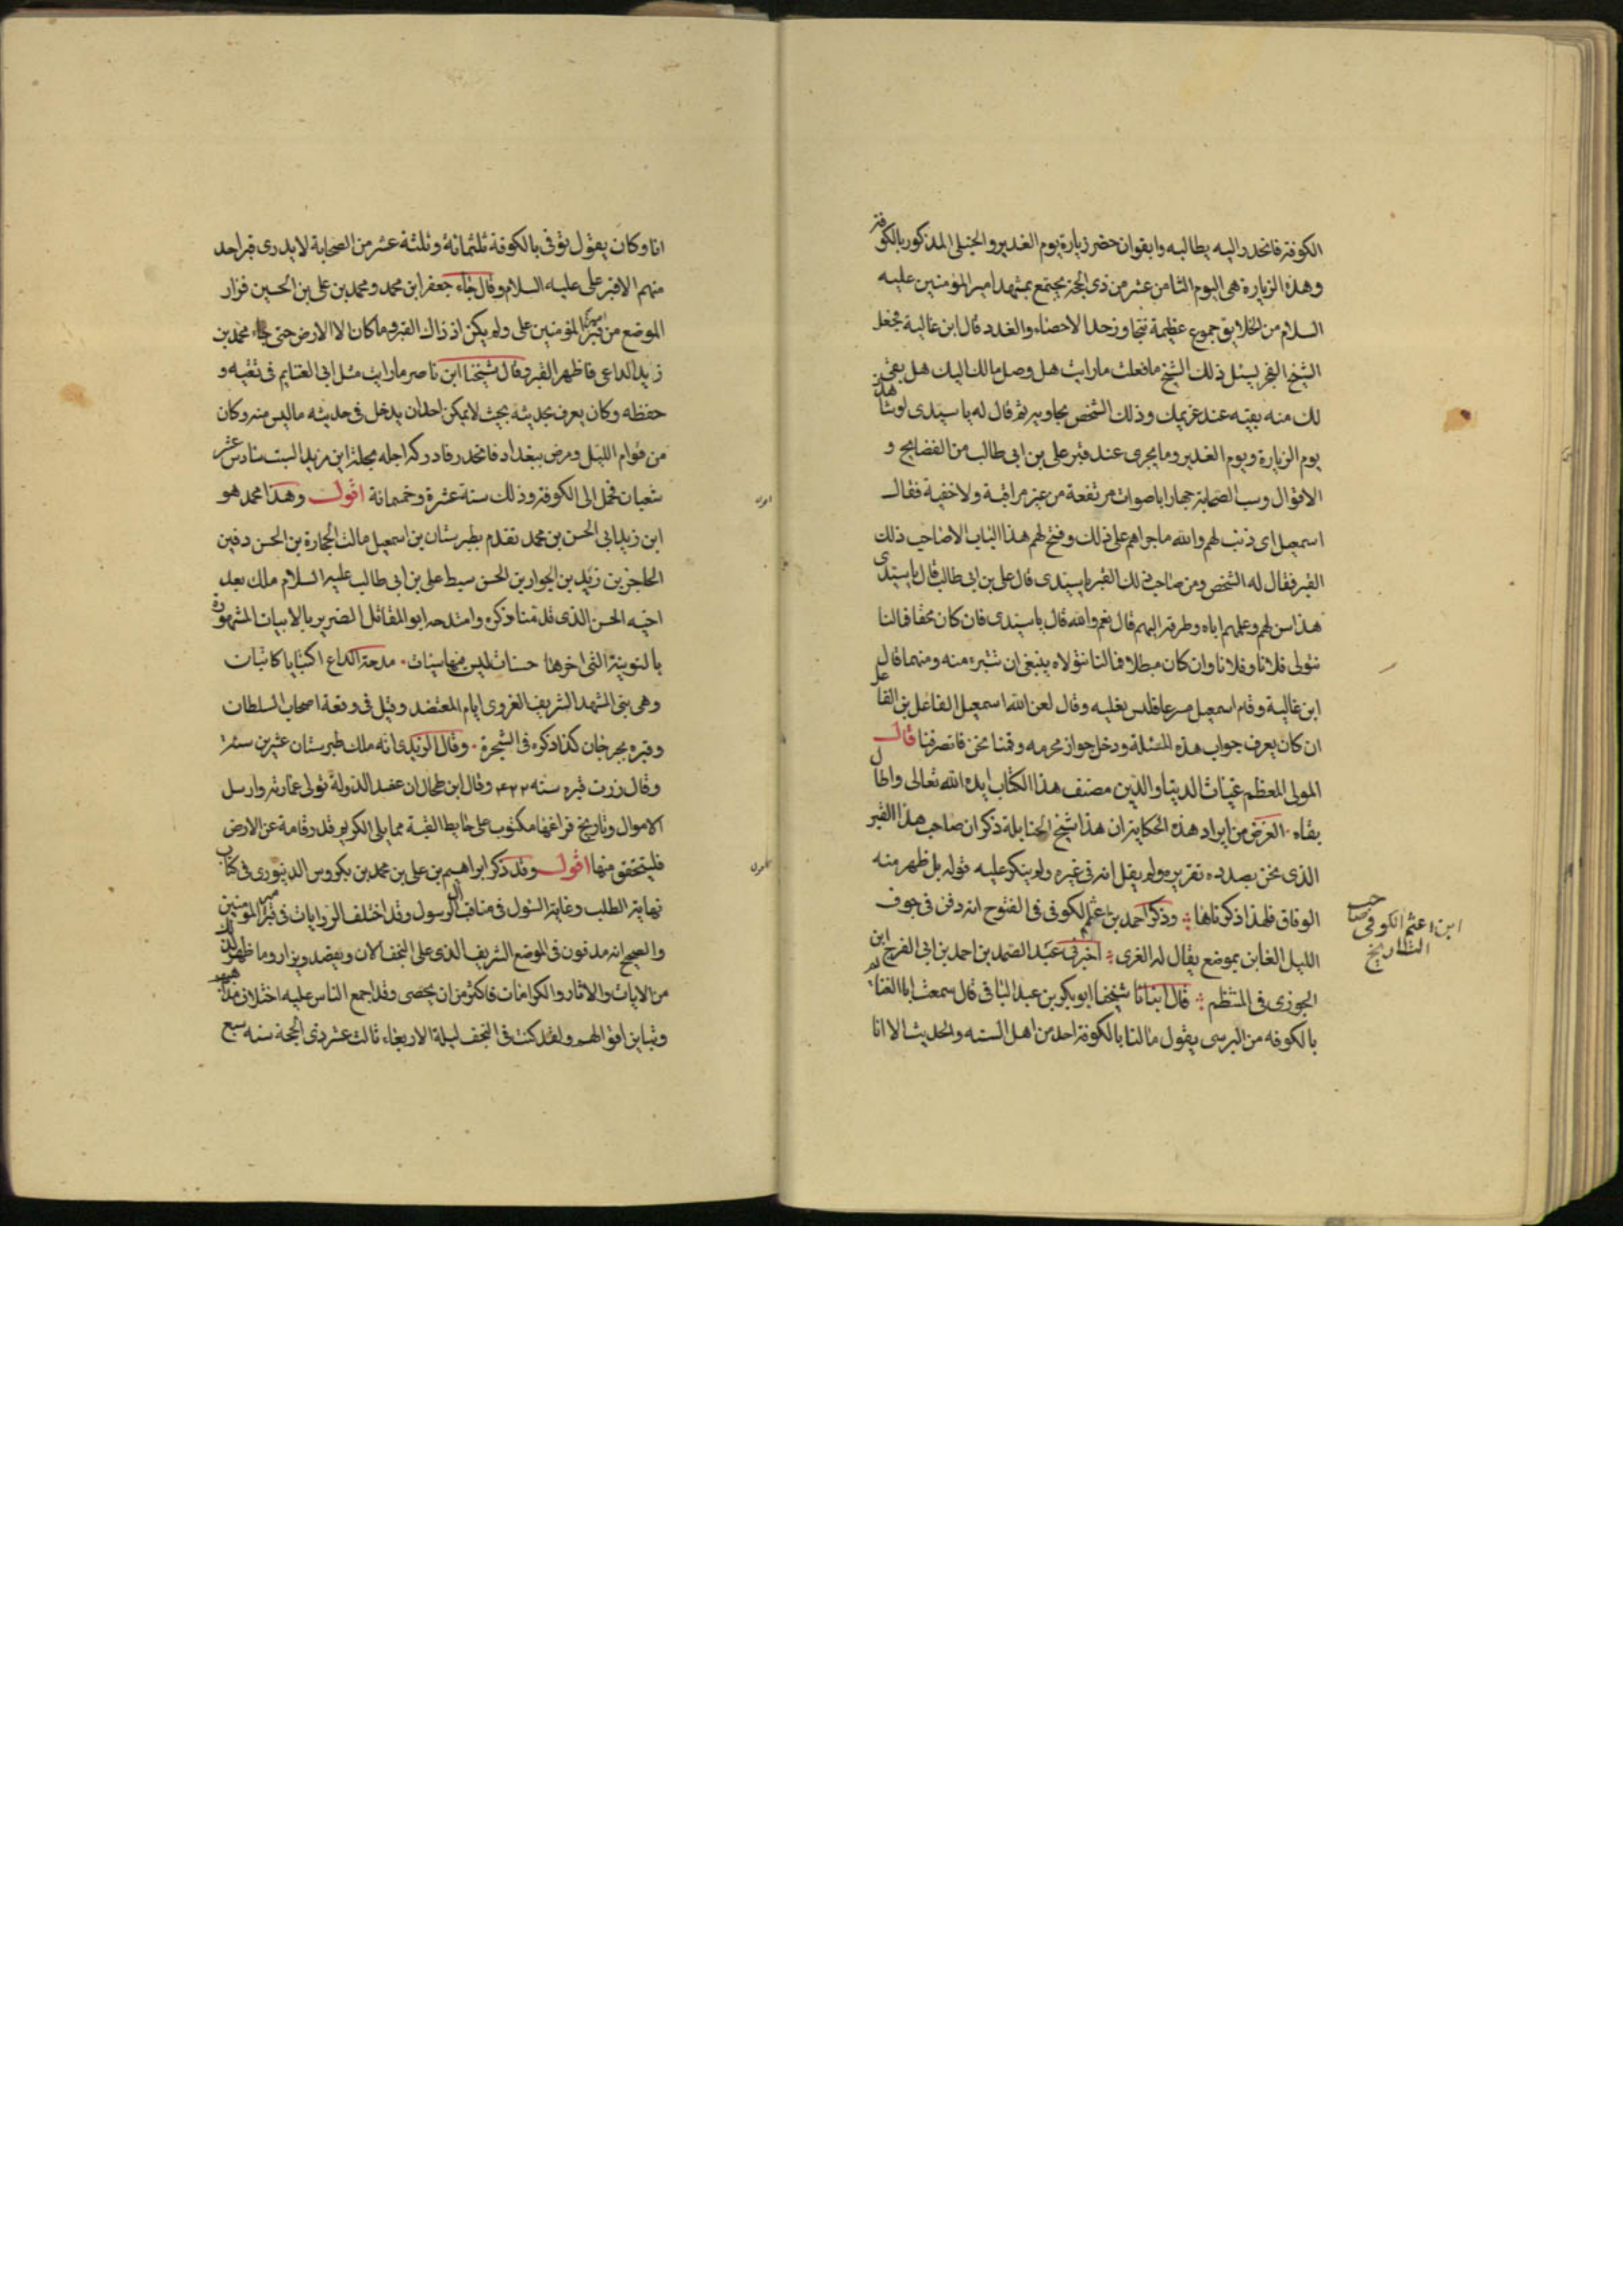 الكوفة فانحدر اليه يطالبه واتفق ان حضر زيارة يوم الغدير والحنبلى المذكور بالكوفة
وهذه الزيارة هى اليوم الثامن عشر من ذى الحجة يجتمع بمشهد امير المؤمنين عليه
السلام من الخلايق جموع عظيمة تتجاوز حد الاحصاء والعدد قال ابن غالية فجعل
الشيخ الفخر يسئل ذلك الشيخ ما فعلت ما رايت هل وصل مالك اليك هل بقى
لك منه بقيه عند غريمك وذلك الشخص يجاوبه ثم قال له يا سيدى لو شاهدت
يوم الزيارة ويوم الغدير وما يجرى عند قبر على بن ابى طالب من الفضايح و
الاقوال وسب الصحابة جهارا باصوات مرتفعة من غير مراقبة ولا خفية فقال
اسمعيل اى ذنب لهم والله ما جراهم على ذلك وفتح لهم هذا الباب الا صاحب ذلك
القبر فقال له الشخص ومن صاحب ذلك القبر يا سيدى قال على بن ابى طالب قال يا سيدى
هذا سن لهم وعلمهم اياه وطرقه اليهم قال نعم والله قال يا سيدى فان كان محقا فما لنا
نتولى فلانا وفلانا وان كان مبطلا فما لنا نتولاه ينبغى ان نتبرء منه ومنهما قال
ابن غالية وقام اسمعيل مسرعا فلبس نعليه وقال لعن الله اسمعيل الفاعل بن الفاعل
ان كان يعرف جواب هذه المسئلة ودخل جواز محرمه وقمنا نحن فانصرفنا قال
المولى المعظم غياث الدنيا والدين مصنف هذا الكتاب ايده الله تعالى واطال
بقاه الغرض من ايراد هذه الحكاية ان هذا شيخ الحنابلة ذكر ان صاحب هذا القبر
الذى نحن بصدده تقريره ولم يقل انه فى غيره ولم ينكر عليه قوله بل ظهر منه
الوفاق فلهذا ذكرناها وذكر احمد بن اعثم الكوفى فى الفتوح انه دفن فى جوف
الليل الغابر بموضع يقال له الغرى اخبرنى عبد الصمد بن احمد بن ابى الفرج ابن
الجوزى فى المنتظم قال انبانا شيخنا ابو بكر بن عبد الباقى قال سمعت ابا الغنائم
بالكوفه من البرسى يقول ما لنا بالكوفة احد من اهل السنه والحديث الا انا
ابن اعثم الكوفى صاحب
التاريخ
انا وكان يقول توفى بالكوفة ثلثمائة وثلثة عشر من الصحابة لا يدرى قبر احد
منهم الا قبر على عليه السلام وقال جاء جعفر ابن محمد ومحمد بن على بن الحسين فزار
الموضع من قبر امير المؤمنين على ولم يكن اذ ذاك القبر وما كان الا الارض حتى جاء محمد بن
زيد الداعى فاظهر القبر وقال شيخنا ابن ناصر ما رايت مثل ابى الغنايم فى ثقته و
حفظه وكان يعرف بحديثه بحيث لا يمكن احد ان يدخل فى حديثه ما ليس منه وكان
من قوام الليل ومرض ببغداد فانحدر فادركه اجله بحلة ابن مزيد السبت سادس عشر
شعبان فحمل الى الكوفة وذلك سنة عشرة وخمسمائة اقول وهذا محمد هو
ابن زيد ابى الحسن بن محمد تقدم بطبرستان بن اسمعيل مالت الحجارة بن الحسن دفين
الحاجز بن زيد بن الجواد بن الحسن سبط على بن ابى طالب عليه السلام ملك بعد
اخيه الحسن الذى قد منا ذكره وامتدحه ابو المقاتل الضرير بالابيات المشهورة
بالنوينة التى اخرها حسنات ليس فيها سيئات مدحة الداع اكتبا يا كاتبات
وهى بنى المشهد الشريف الغروى ايام المعتضد وقيل فى وقعة اصحاب السلطان
وقبره بجرجان كذا ذكره فى الشجرة وقال الزيدى انه ملك طبرستان عشرين سنة
وقال زرت قبره سنه ٤٢٢ وقال ابن طحال ان عضد الدولة تولى عمارته وارسل
الاموال وتاريخ فراغها مكتوب على حايط القبة مما يلى الكريم قدر قامة عن الارض
فليتحقق منها اقول وقد ذكر ابراهيم بن على بن محمد بن بكروس الدينورى فى كتاب
نهاية الطلب وغاية السئول فى مناقب آل الرسول وقد اختلف الروايات فى قبر امير المؤمنين
والصحيح انه مدفون فى الموضع الشريف الذى على النجف الان ويقصد ويزار وما ظهر لذلك
من الايات والاثار والكرامات فاكثر من ان يحصى وقد اجمع الناس عليه اختلاف مذاهبهم
وتباين اقوالهم ولقد كنت فى النجف ليلة الاربعاء ثالث عشر ذى الحجة سنه سبع